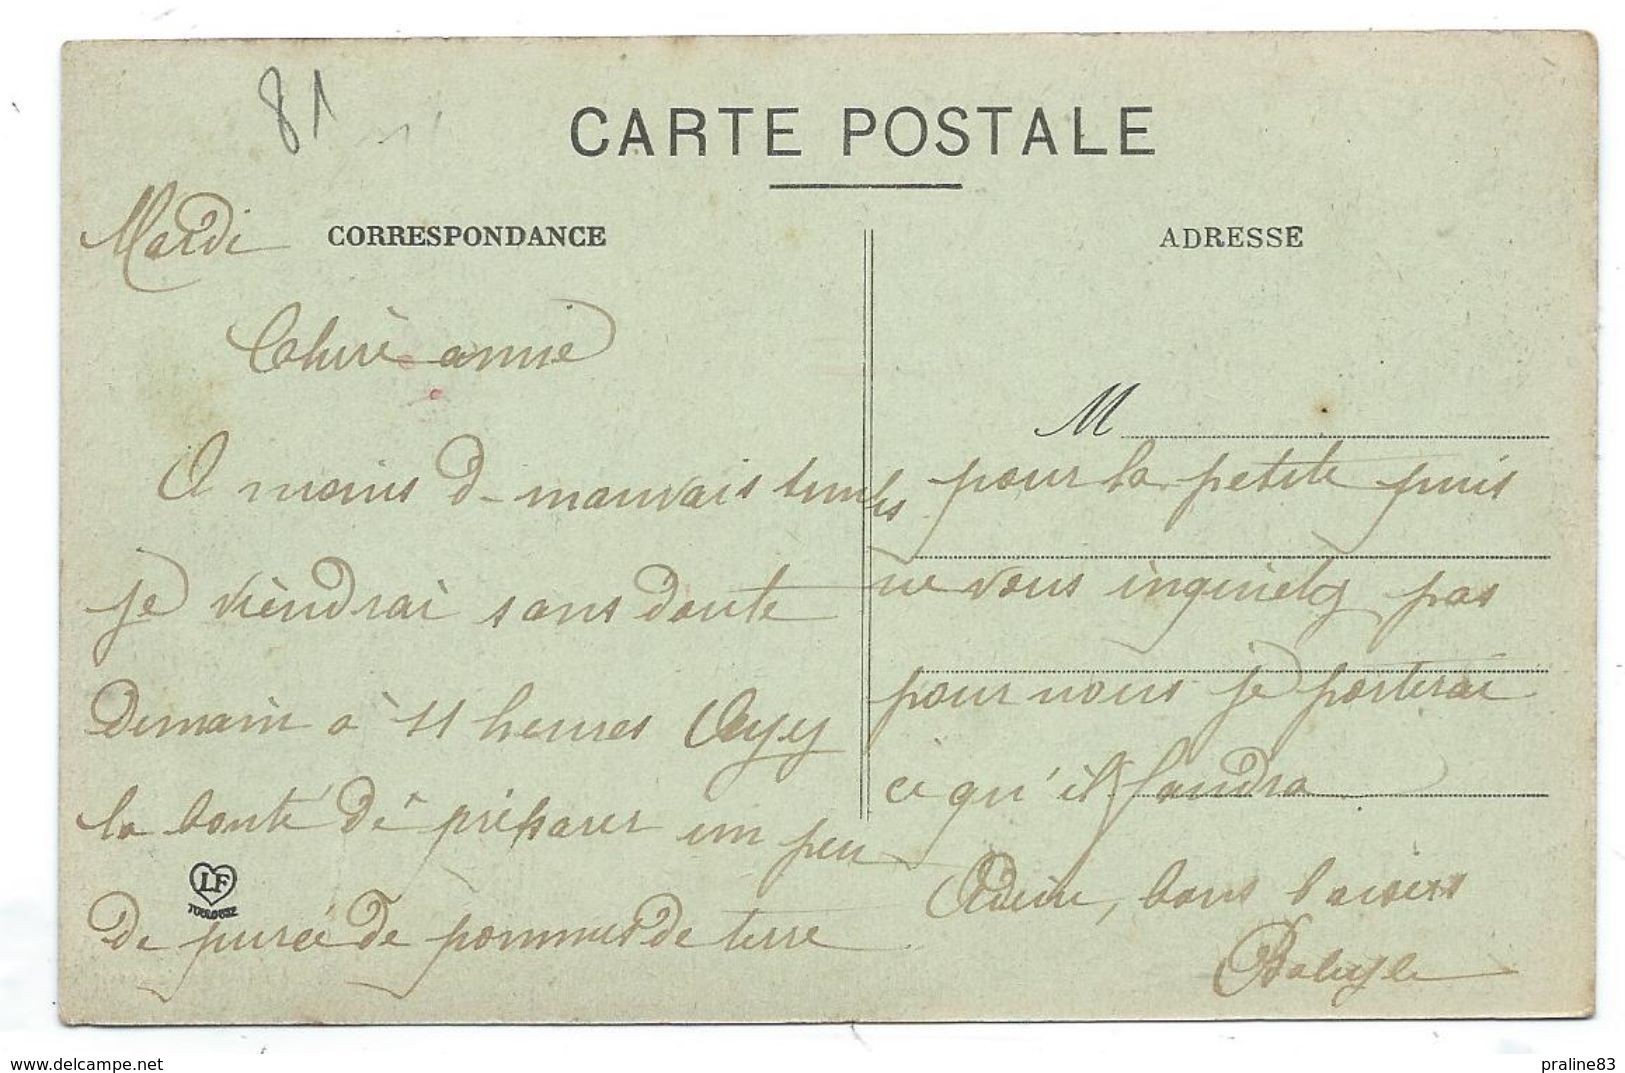 81
CARTE POSTALE
CORRESPONDANCE
ADRESSE
Mardi
Chère amie
A moins de mauvais temps
je viendrai sans doute
demain à 11 heures Ayez
la bonté de préparer un peu
de purée de pommes de terre
M
pour la petite puis
ne vous inquietez pas
pour nous je porterai
ce qu'il faudra
Adieu, bons baisers
LF
TOULOUSE
www.delcampe.net
praline83